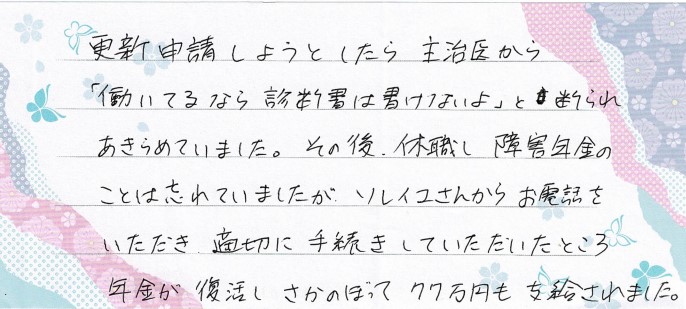 更新申請しようとしたら 主治医から
「働いてるなら診断書は書けないよ」と断られ
あきらめていました。その後、休職し 障害年金の
ことは忘れていましたが、ソレイユさんからお電話を
いただき、適切に手続きしていただいたところ
年金が復活しさかのぼって77万円も支給されました。